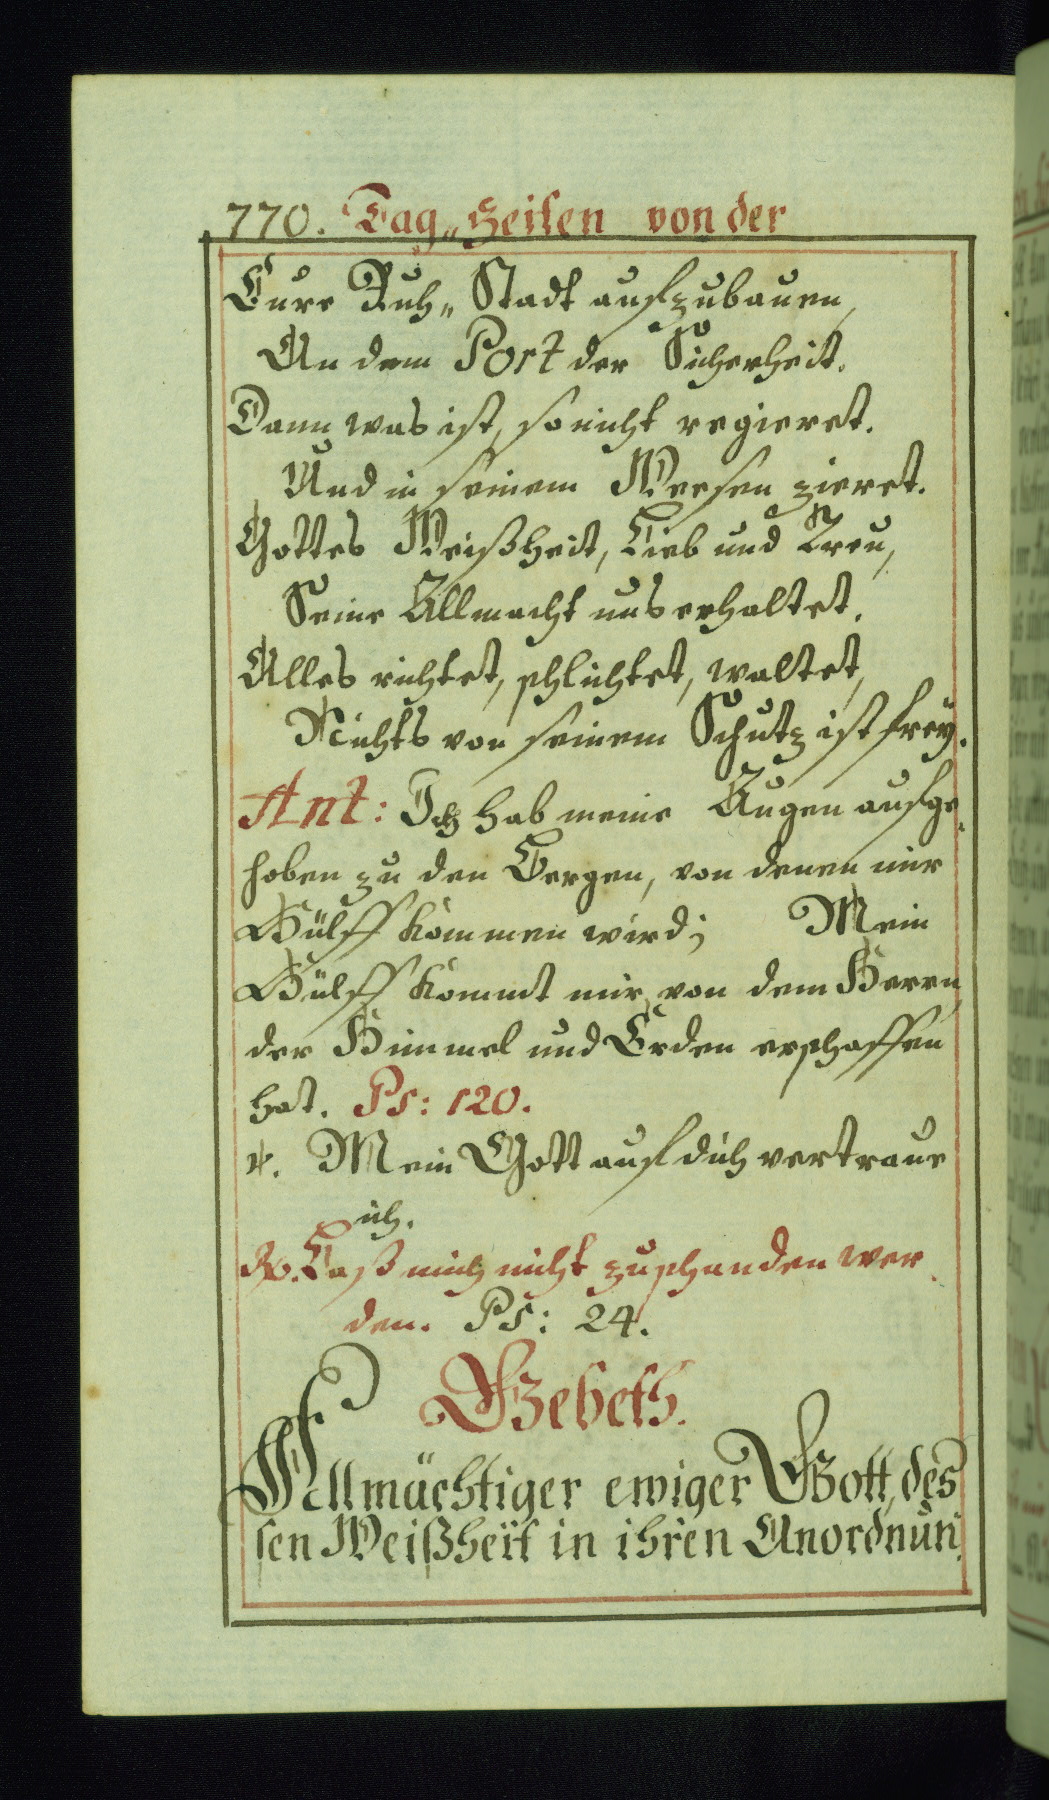 770. Tag„Zeiten von der
Eure Ruh„Stadt aufzubauen,
An dem Port der Sicherheit.
Dann was ist, so nicht regieret.
Und in seinem Weesen zieret.
Gottes Weißheit, Lieb und Treu,
Seine Allmacht uns erhaltet.
Alles richtet, schlichtet, waltet,
Nichts von seinem Schutz ist frey.
Ant: Ich hab meine Augen aufge„
hoben zu den Bergen, von denen mir
Hülff kommen wird; Mein
Hülff kommt mir von dem Herrn,
der Himmel und Erden erschaffen
hat. Ps: 120.
℣. Mein Gott auf dich vertraue
ich.
℟. Laß mich nicht zuschanden wer„
den. Ps: 24.
Gebeth.
Allmächtiger ewiger Gott, des„
sen Weißheit in ihren Anordnun„